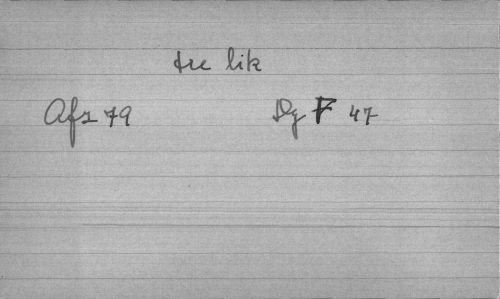 tre lik
Afz 79 Dg F 47